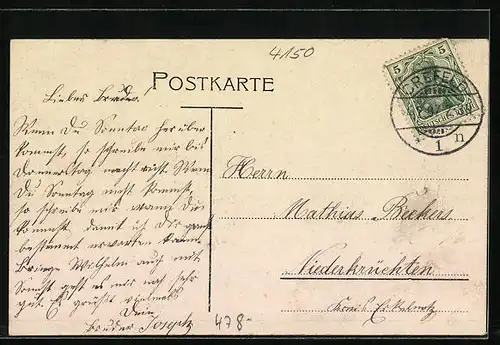 4150
POSTKARTE
5 5
CREFELD
1 n
Liebes Bruder!
Wenn Du Sonntag herüber
kommst, so schreibe mir bis
Donnerstag nacht nicht. Wenn
Du Sonntag nicht kommst,
so schreibe mir wann Du
kommst, damit ich Dir ganz
bestimmt erwarten kann.
Bringe Wilhelm auch mit
Sonst geht es mir noch sehr
gut. Es grüßt
Dein
Bruder Joseph
Herrn
Mathias Beckers
Niederkrüchten
Kreis Erkelenz
478-